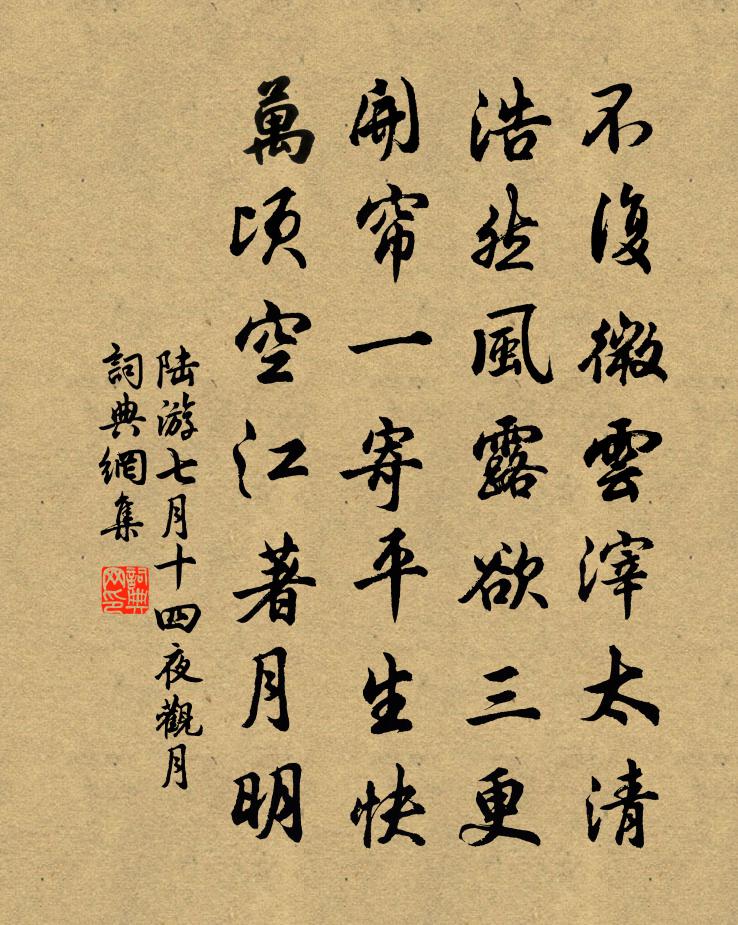 不復微雲滓太清
浩然風露欲三更
開帘一寄平生快
萬頃空江著月明
陆游七月十四夜觀月
詞典網集
詞典网印